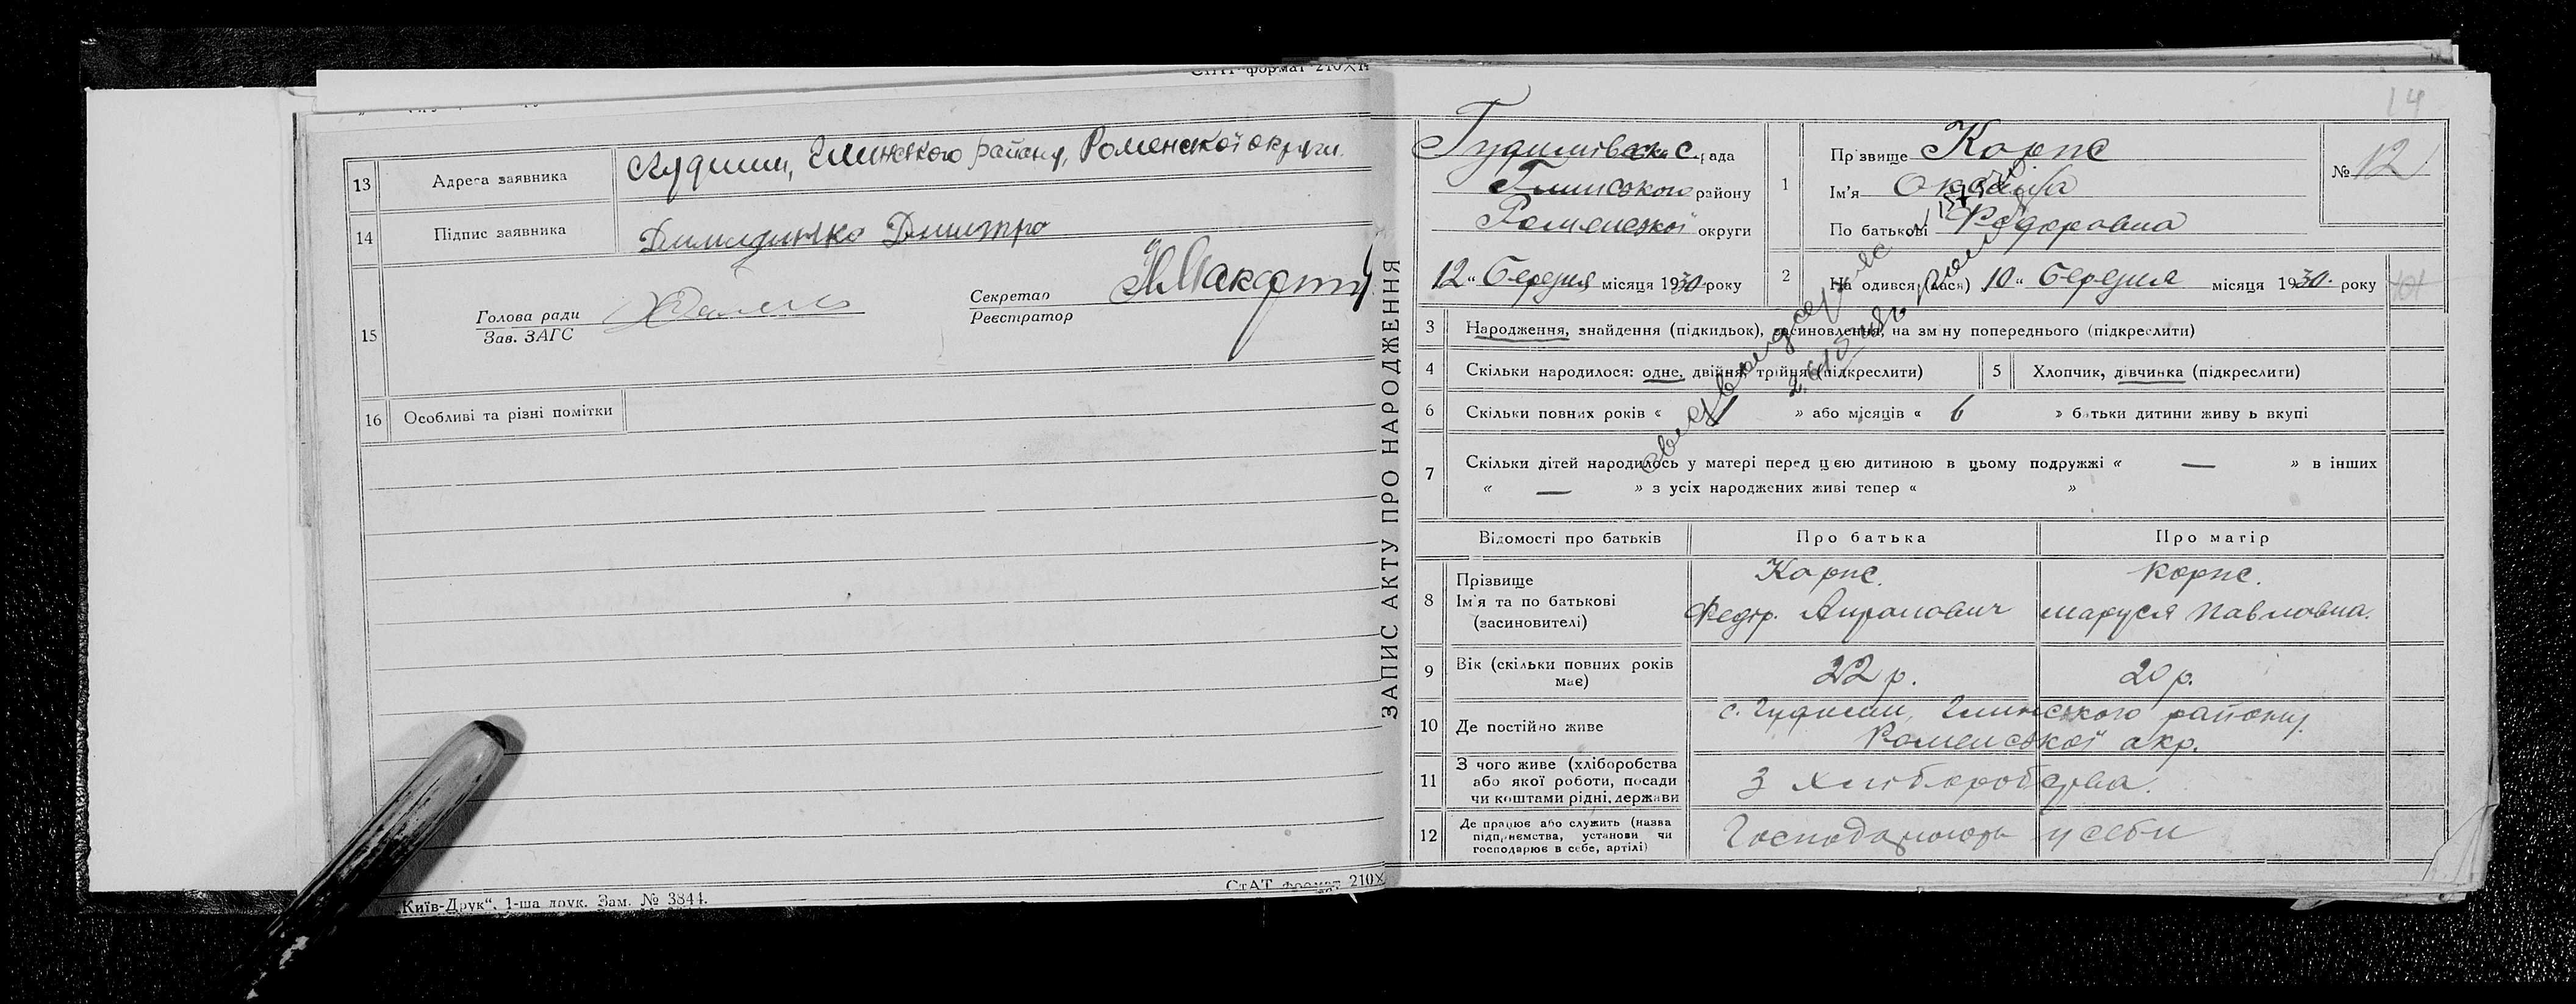 13 Адреса заявника Гудими, Глинського району, Роменської округи.
14 Підпис заявника Димиденко Дмитро
15 Голова ради
Зав. ЗАГС
Секретар
Реєстратор
16 Особливі та різні помітки
„Київ-Друк“. 1-ша друк. Зам. № 3844.
СтАТ формат 210×
ЗАПИС АКТУ ПРО НАРОДЖЕННЯ
14
Гудимівська с.рада
Глинського району
Роменської округи
„12“ березня місяця 1930 року
1 Прізвище Корпс
Ім'я
По батькові Федоровна
№ 12
2 На одився (лася) „10“ березня місяця 1930 року
3 Народження, знайдення (підкидьок), усиновлення, на зміну попереднього (підкреслити)
4 Скільки народилося: одне, двійня, трійня (підкреслити)
5 Хлопчик, дівчинка (підкреслити)
6 Скільки повних років « 1 » або місяців « 6 » батьки дитини живуть вкупі
7 Скільки дітей народилось у матері перед цією дитиною в цьому подружжі « — » в інших
« — » з усіх народжених живі тепер « »
Відомості про батьків Про батька Про матір
8 Прізвище
Ім'я та по батькові
(засиновителі)
Корпс.
Федір.
Корпс.
Маруся Павловна.
9 Вік (скільки повних років
має)
22 р. 20 р.
10 Де постійно живе
с. Гудими, Глинського району,
Роменської окр.
11 З чого живе (хліборобства
або якої роботи, посади
чи коштами рідні, держави
З хліборобства.
12 Де працює або служить (назва
підприємства, установи чи
господарює в себе, артілі)
Господарюють у себе